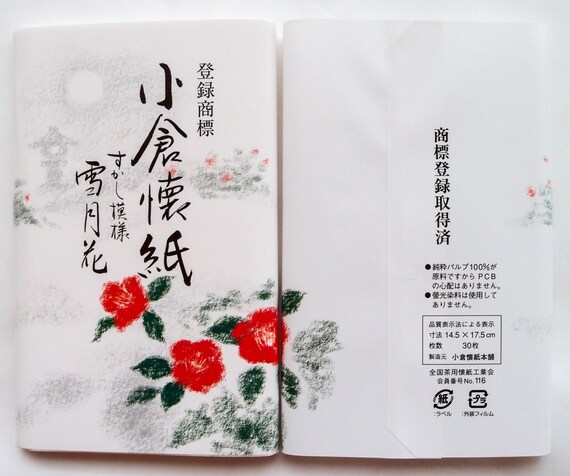 登録商標
小倉懐紙
すかし模様
雪月花
商標登録取得済
●純粋パルプ100%が
原料ですからPCB
の心配はありません。
●螢光染料は使用して
ありません。
品質表示法による表示
寸法 14.5×17.5cm
枚数 30枚
製造元 小倉懐紙本舗
全国茶用懐紙工業会
会員番号No.116
紙
:ラベル
プラ
:外装フィルム